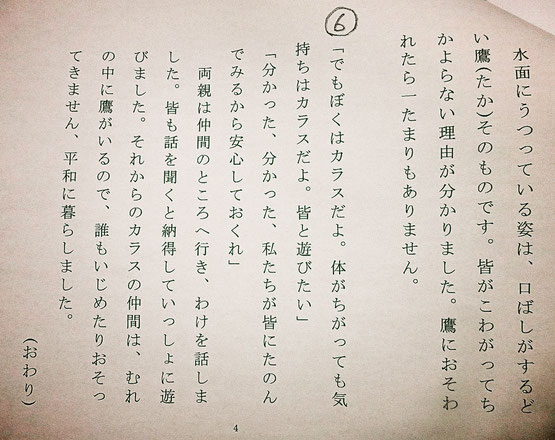 水面にうつっている姿は、口ばしがするど
い鷹(たか)そのものです。皆がこわがってち
かよらない理由が分かりました。鷹におそわ
れたら一たまりもありません。
⑥
「でもぼくはカラスだよ。体がちがっても気
持ちはカラスだよ。皆と遊びたい」
「分かった、分かった、私たちが皆にたのん
でみるから安心しておくれ」
両親は仲間のところへ行き、わけを話しま
した。皆も話を聞くと納得していっしょに遊
びました。それからのカラスの仲間は、むれ
の中に鷹がいるので、誰もいじめたりおそっ
てきません、平和に暮らしました。
(おわり)
4